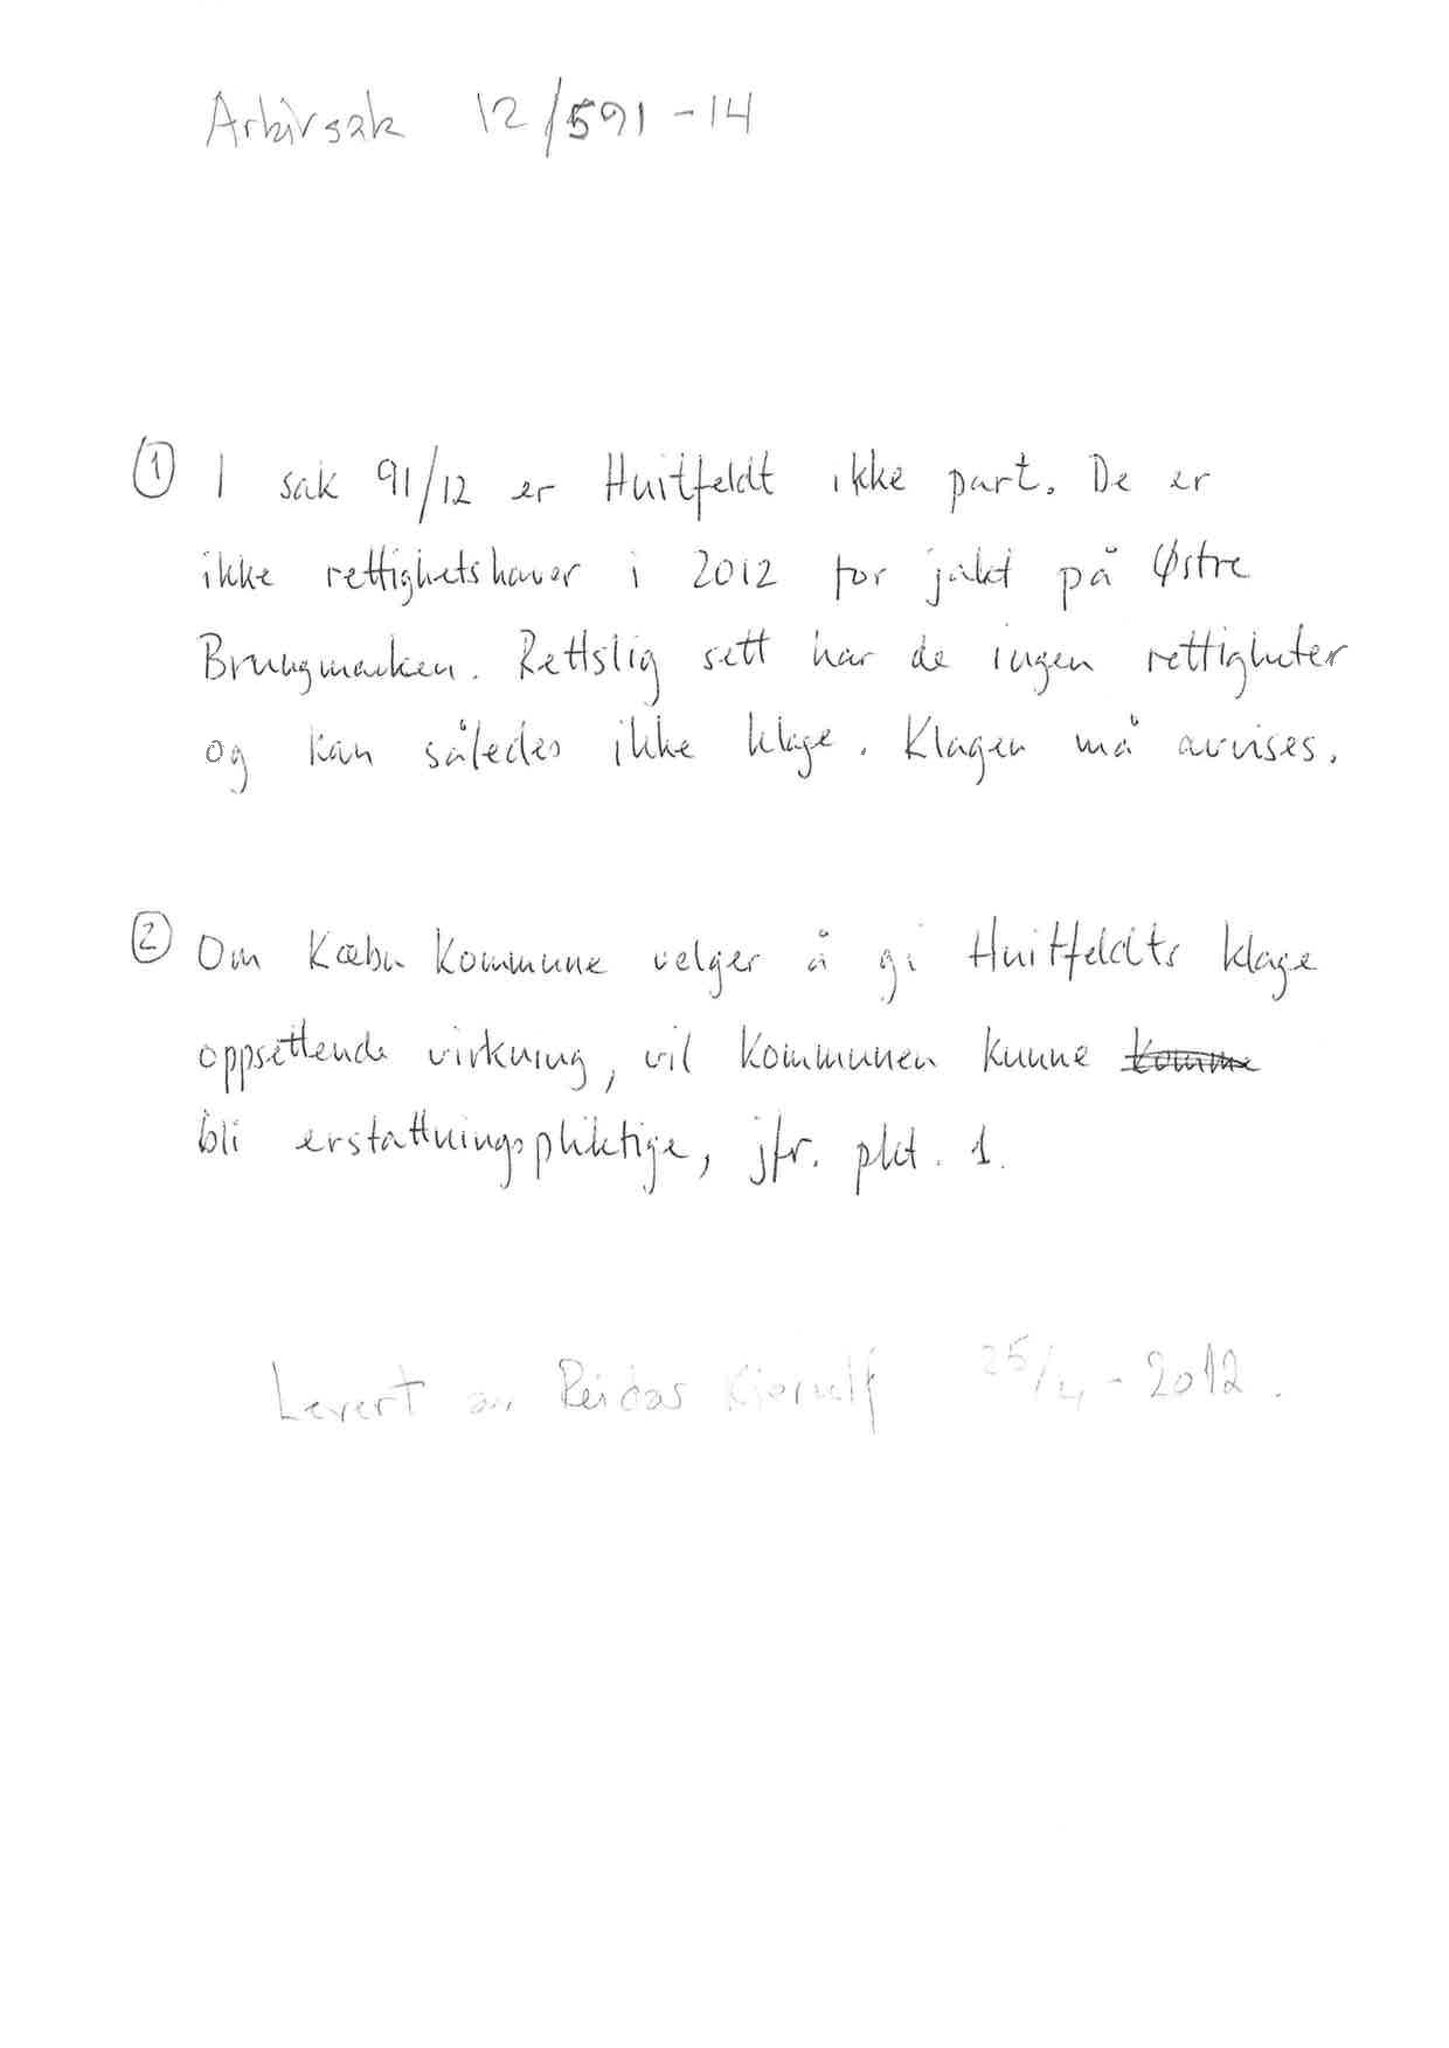 Arkivsak 12/591-14
① I sak 91/12 er Huitfeldt ikke part. De er
ikke rettighetshaver i 2012 for jakt på Østre
Brungmarken. Rettslig sett har de ingen rettigheter
og kan således ikke klage. Klagen må avvises.
② Om Kæbu Kommune velger å gi Huitfeldts klage
oppsettende virkning, vil kommunen kunne komme
bli erstattningspliktige, jfr. pkt. 1.
Levert av Reidar 25/4-2012.